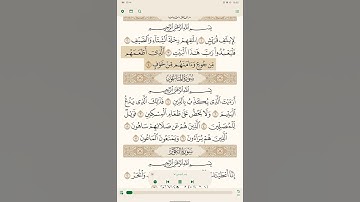 بِسْمِ اللَّهِ الرَّحْمَٰنِ الرَّحِيمِ
لِإِيلَافِ قُرَيْشٍ ۝ إِيلَافِهِمْ رِحْلَةَ الشِّتَاءِ وَالصَّيْفِ ۝
فَلْيَعْبُدُوا رَبَّ هَٰذَا الْبَيْتِ ۝ الَّذِي أَطْعَمَهُم
مِّن جُوعٍ وَآمَنَهُم مِّنْ خَوْفٍ ۝
سُورَةُ الْمَاعُونِ
بِسْمِ اللَّهِ الرَّحْمَٰنِ الرَّحِيمِ
أَرَأَيْتَ الَّذِي يُكَذِّبُ بِالدِّينِ ۝ فَذَٰلِكَ الَّذِي يَدُعُّ
الْيَتِيمَ ۝ وَلَا يَحُضُّ عَلَىٰ طَعَامِ الْمِسْكِينِ ۝ فَوَيْلٌ
لِّلْمُصَلِّينَ ۝ الَّذِينَ هُمْ عَن صَلَاتِهِمْ سَاهُونَ ۝
الَّذِينَ هُمْ يُرَاءُونَ ۝ وَيَمْنَعُونَ الْمَاعُونَ ۝
سُورَةُ الْكَوْثَرِ
بِسْمِ اللَّهِ الرَّحْمَٰنِ الرَّحِيمِ
إِنَّا أَعْطَيْنَاكَ
وَانْحَرْ